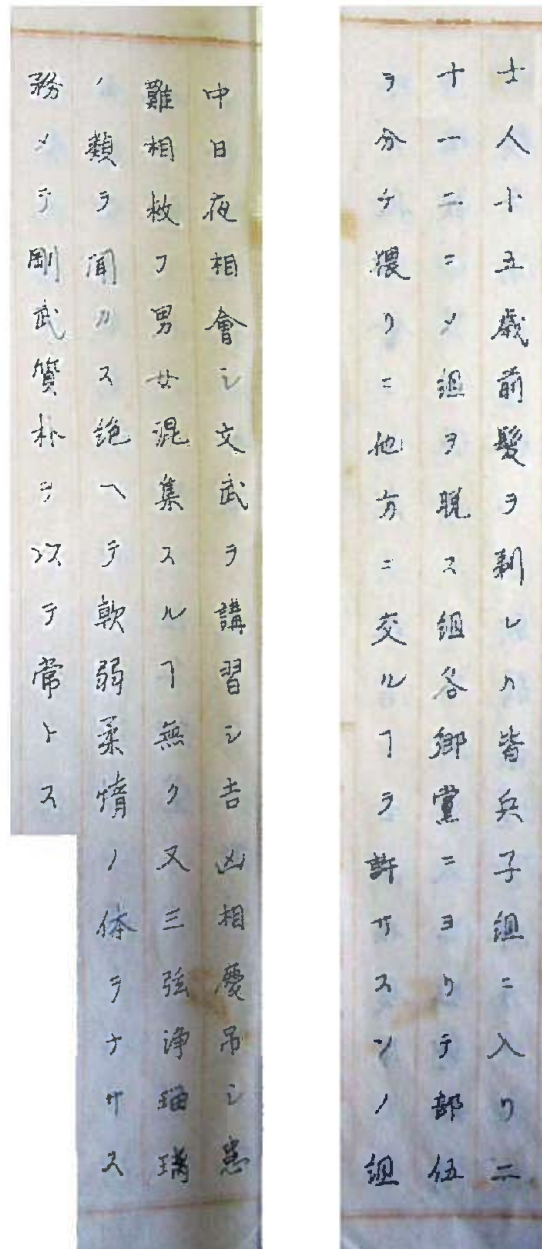 士人十五歳前髪ヲ剃レハ皆兵子組ニ入リ二
十一二ニメ組ヲ脱ス組各郷黨ニヨリテ部伍
ヲ分チ猥リニ他方ニ交ルヿヲ許サスソノ組
中日夜相會シ文武ヲ講習シ吉凶相慶吊シ患
難相救フ男女混集スルヿ無ク又三弦浄瑠璃
ノ類ヲ聞カス絶ヘテ軟弱柔惰ノ体ヲナサス
務メテ剛武質朴ヲ以テ常トス